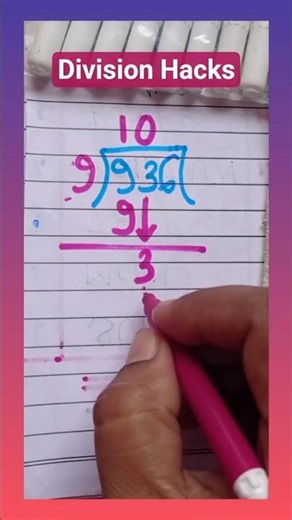 Division Hacks
10
9)936(
9↓
3